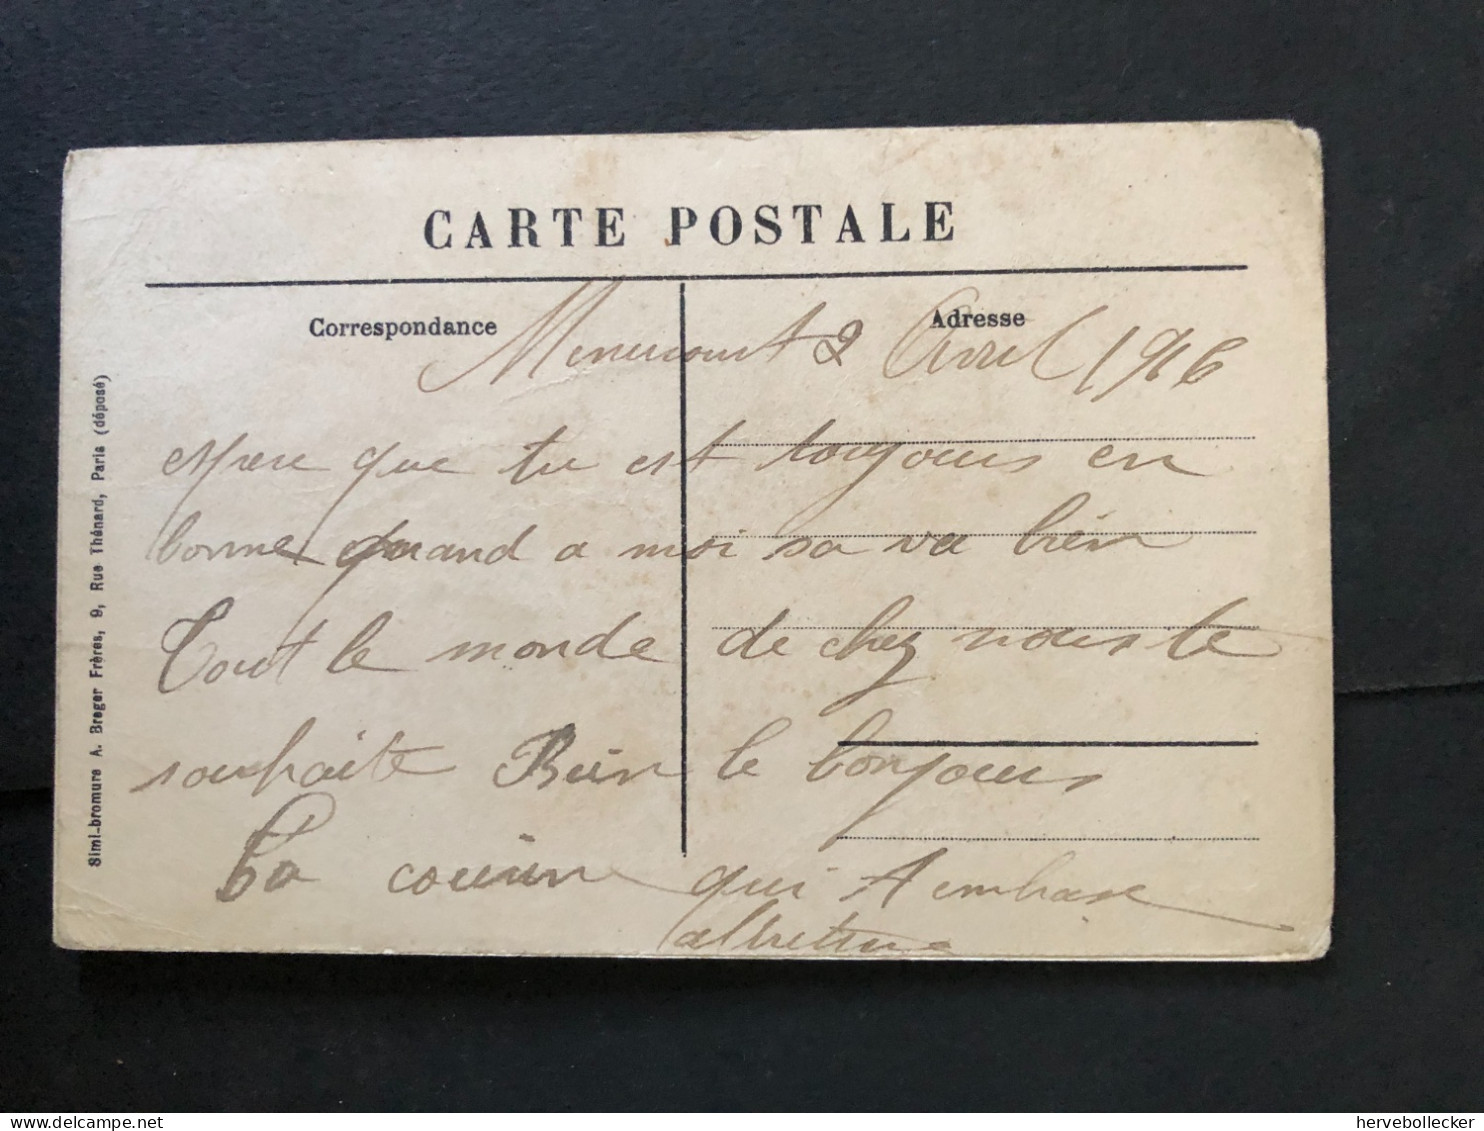 CARTE POSTALE
Correspondance
Adresse
2 Avril 1916
espere que tu est toujours en
bonne quand a moi sa va bien
Tout le monde de chez nous te
souhaite Bien le bonjours
Ta cousine qui t embrasse
Simi-bromure A. Breger Frères, 9, Rue Thénard, Paris (déposé)
hervebollecker